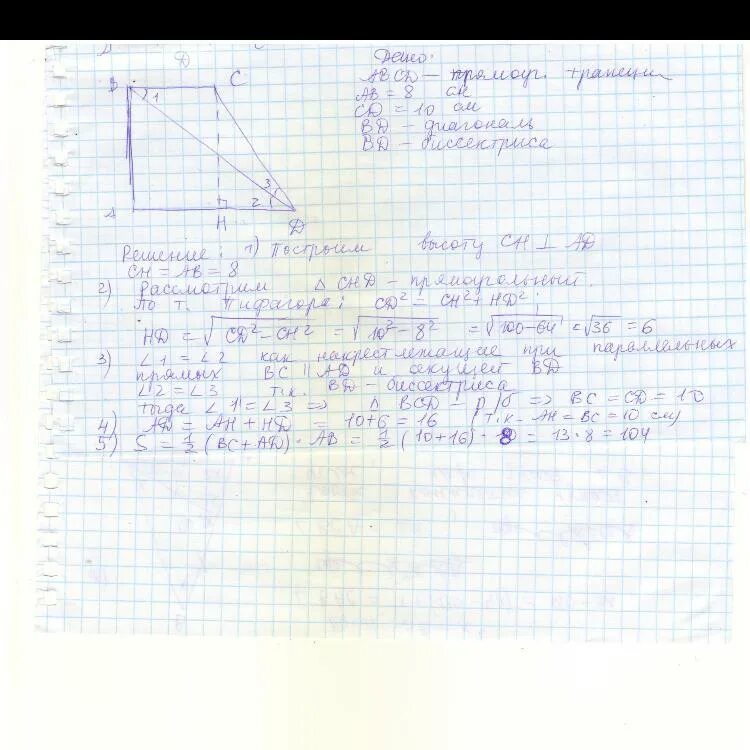 Д
B 1 C
3
2
A H D
Дано:
ABCD – прямоуг. трапеция
AB = 8 см
CD = 10 см
BD – диагональ
BD – биссектриса
Решение: 1) Построим высоту CH ⊥ AD
CH = AB = 8
2) Рассмотрим △ CHD – прямоугольный.
По т. Пифагора: CD² = CH² + HD²;
HD = √CD² – CH² = √10² – 8² = √100 – 64 = √36 = 6
3) ∠1 = ∠2 как накрест лежащие при параллельных
прямых BC || AD и секущей BD
∠2 = ∠3 т.к. BD – биссектриса
тогда ∠1 = ∠3 => △ BCD – р/б => BC = CD = 10
4) AD = AH + HD = 10 + 6 = 16 (т.к. AH = BC = 10 см)
5) S = 1/2 (BC + AD) · AB = 1/2 (10 + 16) · 8 = 13 · 8 = 104